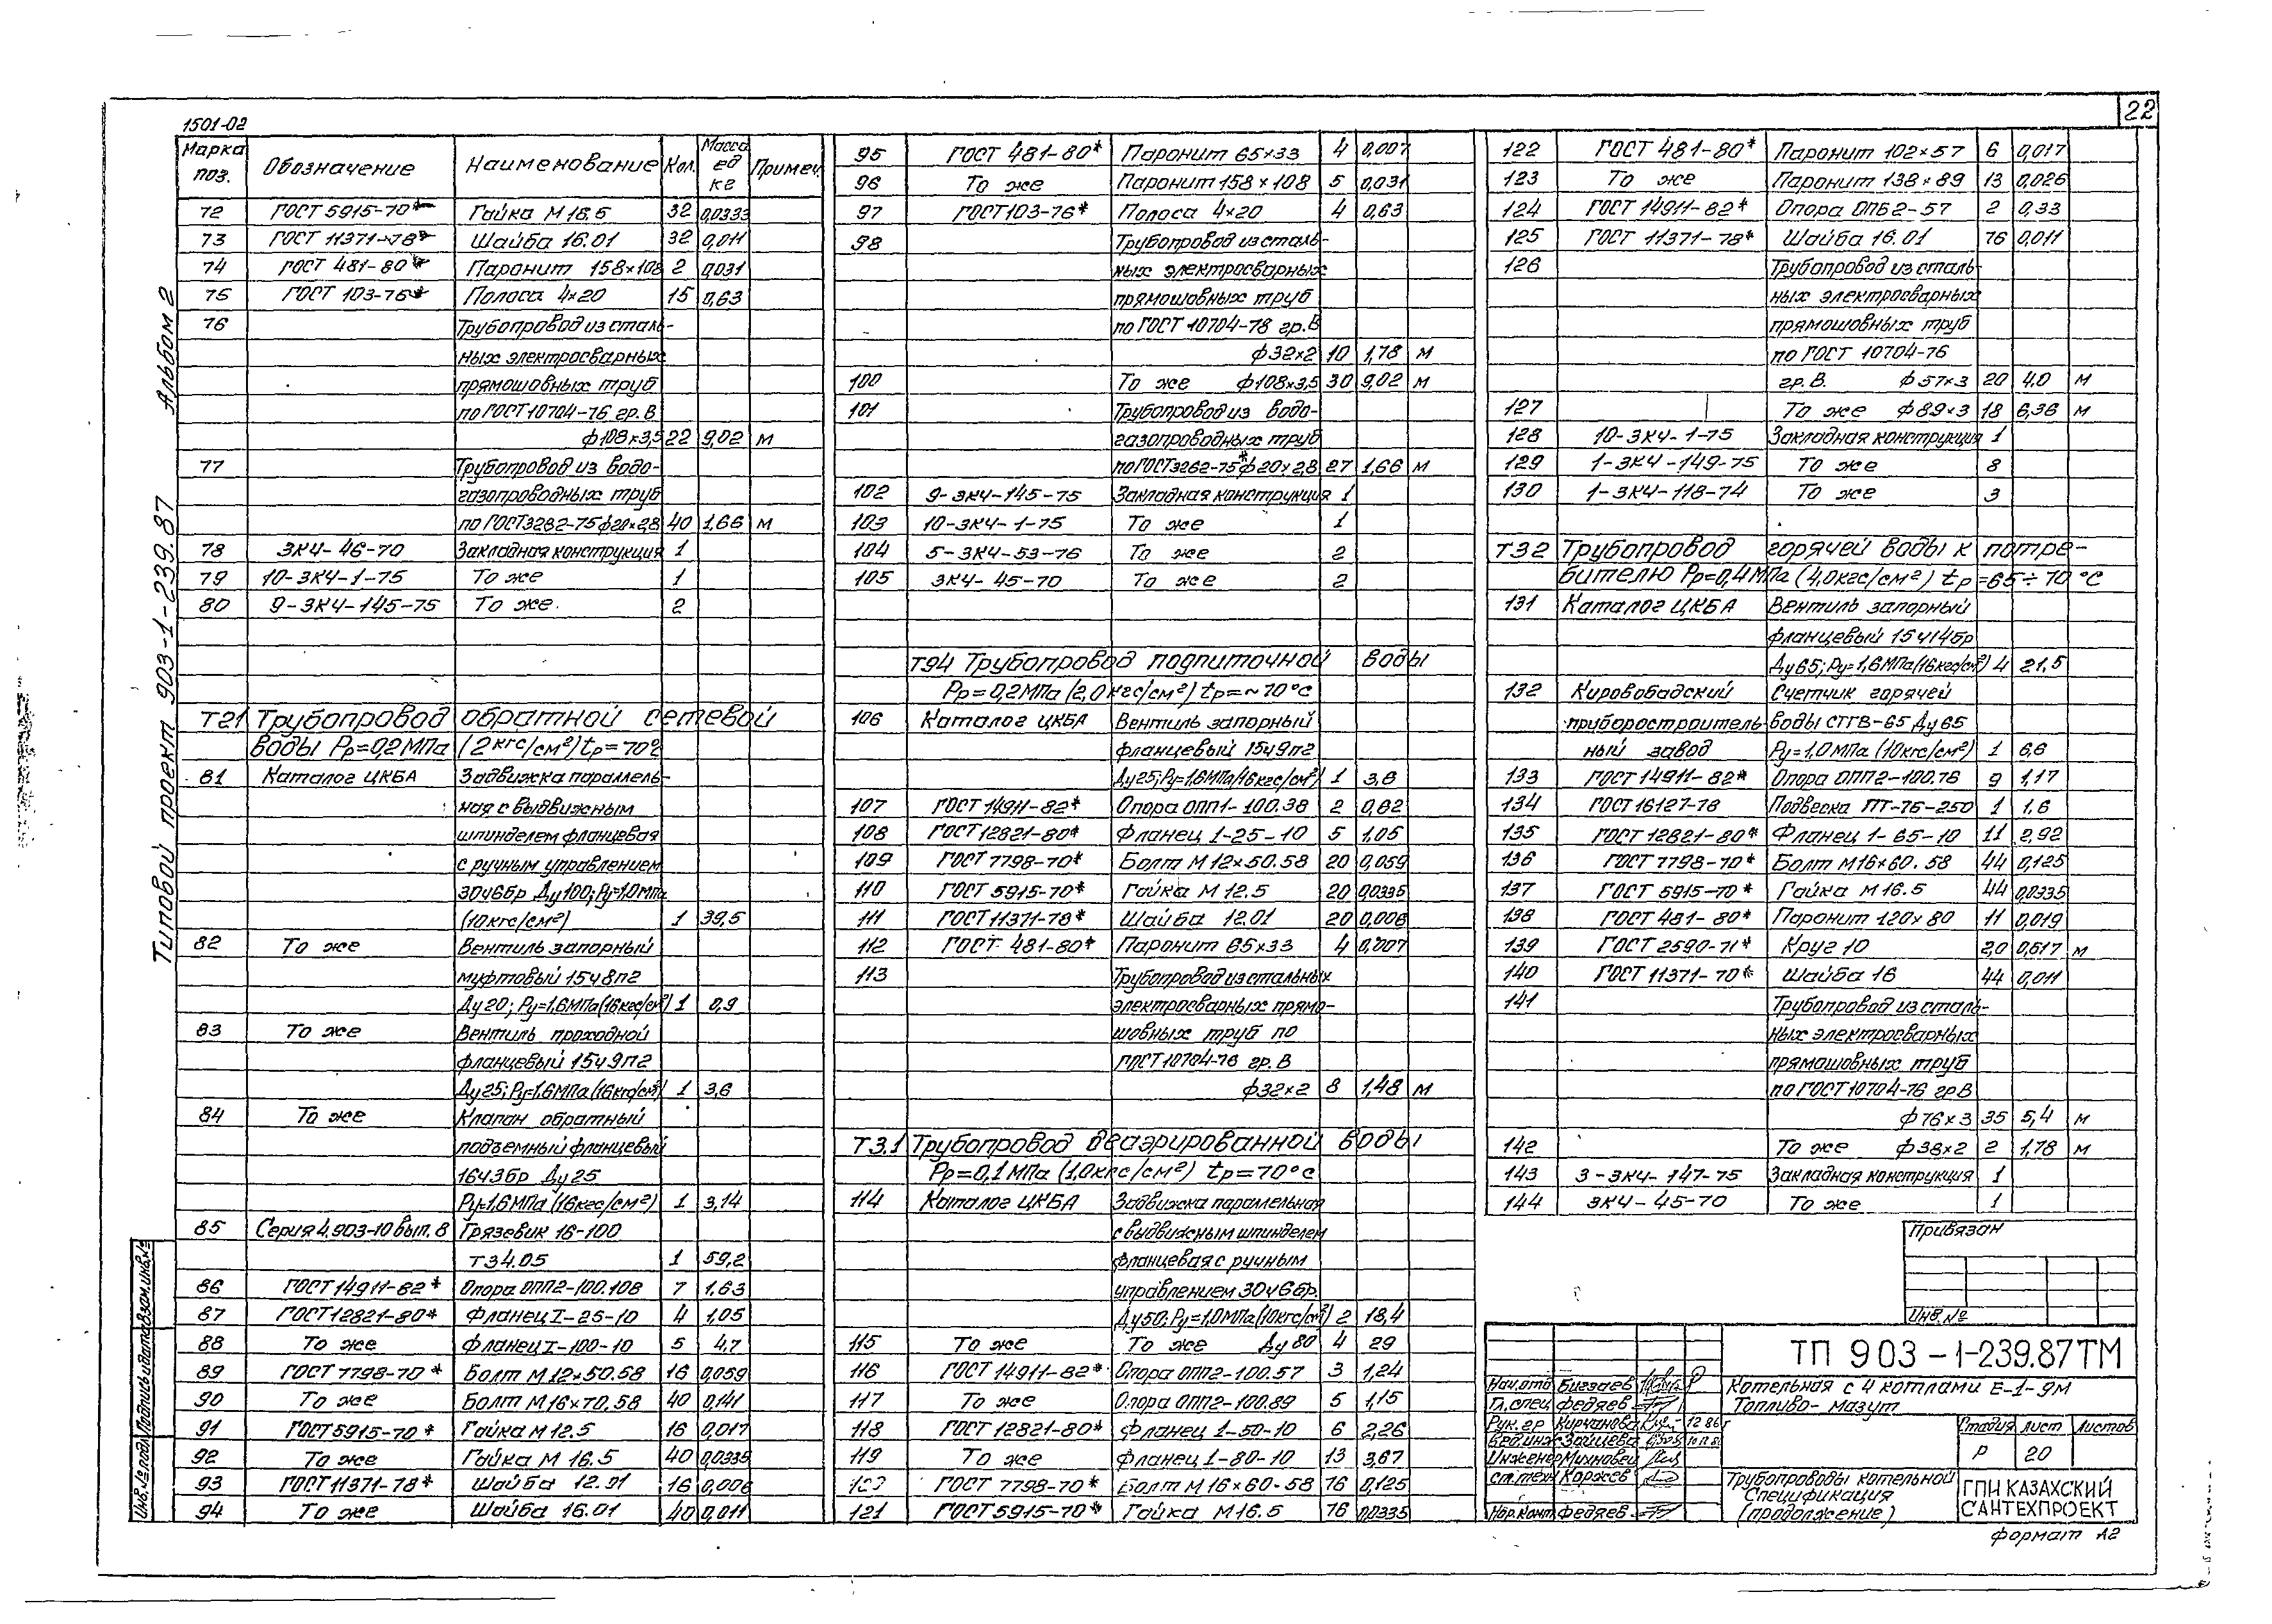 22
1501-02
Альбом 2
Типовой проект 903-1-239.87
Марка поз. Обозначение Наименование Кол. Масса ед кг Примеч.
72 ГОСТ 5915-70* Гайка М 16.5 32 0,0333
73 ГОСТ 11371-78* Шайба 16.01 32 0,011
74 ГОСТ 481-80* Паронит 158×108 2 0,031
75 ГОСТ 103-76* Полоса 4×20 15 0,63
76 Трубопровод из сталь-
ных электросварных
прямошовных труб
по ГОСТ 10704-76 гр.В
ф108×3,5 22 9,02 м
77 Трубопровод из водо-
газопроводных труб
по ГОСТ3262-75 ф20×2,8 40 1,66 м
78 ЗК4-46-70 Закладная конструкция 1
79 10-ЗК4-1-75 То же 1
80 9-ЗК4-145-75 То же. 2
Т21 Трубопровод обратной сетевой
воды Рр=0,2МПа (2кгс/см²) tр=70°
81 Каталог ЦКБА Задвижка параллель-
ная с выдвижным
шпинделем фланцевая
с ручным управлением
30ч6бр Ду100; Ру=1,0МПа
(10кгс/см²) 1 39,5
82 То же Вентиль запорный
муфтовый 15ч8п2
Ду20; Ру=1,6МПа(16кгс/см²) 1 0,9
83 То же Вентиль проходной
фланцевый 15ч9п2
Ду25; Ру=1,6МПа(16кгс/см²) 1 3,6
84 То же Клапан обратный
подъемный фланцевый
16ч3бр Ду25
Ру=1,6МПа(16кгс/см²) 1 3,14
85 Серия 4.903-10 вып.8 Грязевик 16-100
Т34.05 1 59,2
86 ГОСТ 14911-82* Опора ОПП2-100.108 7 1,63
87 ГОСТ12821-80* Фланец I-25-10 4 1,05
88 То же Фланец I-100-10 5 4,7
89 ГОСТ 7798-70* Болт М 12×50.58 16 0,059
90 То же Болт М16×70.58 40 0,141
91 ГОСТ5915-70* Гайка М 12.5 16 0,017
92 То же Гайка М 16.5 40 0,0335
93 ГОСТ11371-78* Шайба 12.01 16 0,006
94 То же Шайба 16.01 40 0,011
95 ГОСТ 481-80* Паронит 65×33 4 0,007
96 То же Паронит 158×108 5 0,031
97 ГОСТ103-76* Полоса 4×20 4 0,63
98 Трубопровод из сталь-
ных электросварных
прямошовных труб
по ГОСТ 10704-78 гр.В
ф32×2 10 1,78 м
100 То же ф108×3,5 30 9,02 м
101 Трубопровод из водо-
газопроводных труб
по ГОСТ3262-75* ф20×2,8 27 1,66 м
102 9-ЗК4-145-75 Закладная конструкция 1
103 10-ЗК4-1-75 То же 1
104 5-ЗК4-53-76 То же 2
105 ЗК4-45-70 То же 2
Т94 Трубопровод подпиточной воды
Рр=0,2МПа (2,0кгс/см²) tр=~70°С
106 Каталог ЦКБА Вентиль запорный
фланцевый 15ч9п2
Ду25; Ру=1,6МПа(16кгс/см²) 1 3,6
107 ГОСТ 14911-82* Опора ОПП1-100.38 2 0,82
108 ГОСТ12821-80* Фланец I-25-10 5 1,05
109 ГОСТ 7798-70* Болт М 12×50.58 20 0,059
110 ГОСТ 5915-70* Гайка М 12.5 20 0,0335
111 ГОСТ11371-78* Шайба 12.01 20 0,006
112 ГОСТ 481-80* Паронит 65×33 4 0,007
113 Трубопровод из стальных
электросварных прямо-
шовных труб по
ГОСТ10704-76 гр.В
ф32×2 8 1,48 м
Т3.1 Трубопровод деаэрированной воды
Рр=0,1МПа (1,0кгс/см²) tр=70°С
114 Каталог ЦКБА Задвижка параллельная
с выдвижным шпинделем
фланцевая с ручным
управлением 30ч6бр.
Ду50; Ру=1,0МПа(10кгс/см²) 2 18,4
115 То же То же Ду 80 4 29
116 ГОСТ 14911-82* Опора ОПП2-100.57 3 1,24
117 То же Опора ОПП2-100.89 5 1,15
118 ГОСТ 12821-80* Фланец 1-50-10 6 2,26
119 То же Фланец 1-80-10 13 3,67
120 ГОСТ 7798-70* Болт М 16×60-58 76 0,125
121 ГОСТ5915-70* Гайка М16.5 76 0,0335
122 ГОСТ 481-80* Паронит 102×57 6 0,017
123 То же Паронит 138×89 13 0,026
124 ГОСТ 14911-82* Опора ОПБ2-57 2 0,33
125 ГОСТ 11371-78* Шайба 16.01 76 0,011
126 Трубопровод из сталь-
ных электросварных
прямошовных труб
по ГОСТ 10704-76
гр.В. ф57×3 20 4,0 м
127 То же ф89×3 18 6,36 м
128 10-ЗК4-1-75 Закладная конструкция 1
129 1-ЗК4-149-75 То же 8
130 1-ЗК4-118-74 То же 3
Т32 Трубопровод горячей воды к потре-
бителю Рр=0,4МПа (4,0кгс/см²) tр=65÷70°С
131 Каталог ЦКБА Вентиль запорный
фланцевый 15ч14бр
Ду65; Ру=1,6МПа(16кгс/см²) 4 21,5
132 Кировобадский Счетчик горячей
приборостроитель воды СТГВ-65 Ду65
ный завод Ру=1,0МПа (10кгс/см²) 1 66
133 ГОСТ 14911-82* Опора ОПП2-100.76 9 1,17
134 ГОСТ16127-78 Подвеска ПТ-76-250 1 1,6
135 ГОСТ 12821-80* Фланец 1-65-10 11 2,92
136 ГОСТ 7798-70* Болт М16×60.58 44 0,125
137 ГОСТ 5915-70* Гайка М 16.5 44 0,0335
138 ГОСТ 481-80* Паронит 120×80 11 0,019
139 ГОСТ 2590-71* Круг 10 2,0 0,617 м
140 ГОСТ 11371-70* Шайба 16 44 0,011
141 Трубопровод из сталь-
ных электросварных
прямошовных труб
по ГОСТ10704-76 гр.В
ф76×3 35 5,4 м
142 То же ф38×2 2 1,78 м
143 3-ЗК4-147-75 Закладная конструкция 1
144 ЗК4-45-70 То же 1
Привязан
Инв.№
ТП 903-1-239.87ТМ
Котельная с 4 котлами Е-1-9М
Топливо-мазут
Стадия Лист Листов
Р 20
Трубопроводы котельной
Спецификация
(продолжение)
ГПИ КАЗАХСКИЙ
САНТЕХПРОЕКТ
Нач.отд
Гл.спец Федяев
Рук.гр Кирчанова 12 86г
Вед.инж Зайцева
Инженер Михновец
ст.техн Коржев
Нор.конт Федяев
Инв.№подл. Подпись и дата Взам.инв.№
формат А2